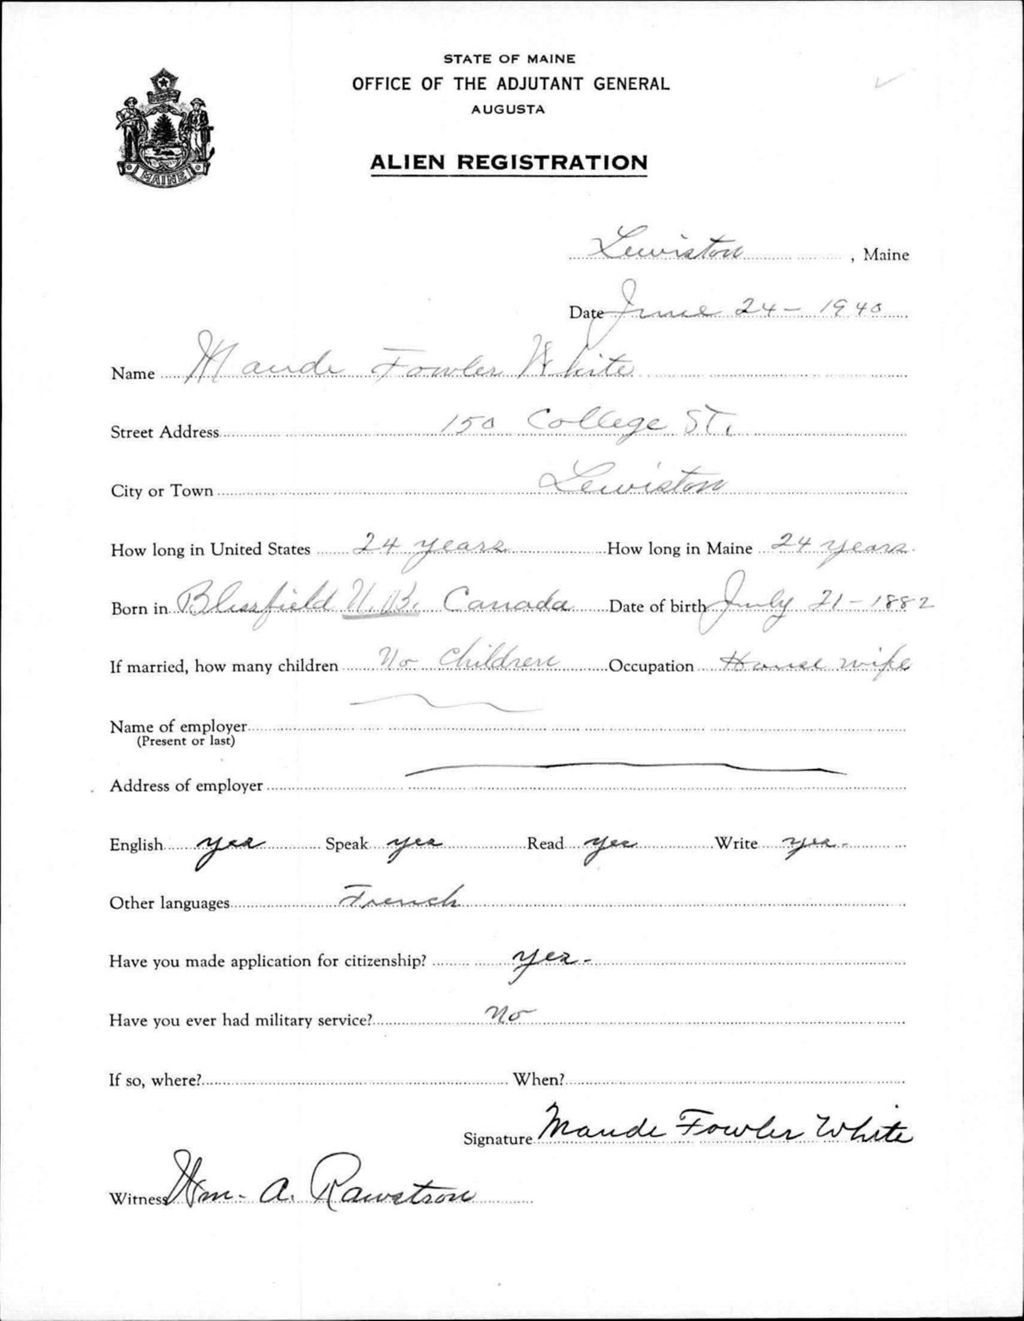 STATE OF MAINE
OFFICE OF THE ADJUTANT GENERAL
AUGUSTA
ALIEN REGISTRATION
MAINE
Lewiston, Maine
Date June 24 - 1940
Name Maude Fowler White
Street Address 150 College St.
City or Town Lewiston
How long in United States 24 years How long in Maine 24 years
Born in Blissfield N.B. Canada Date of birth July 21 - 1882
If married, how many children No children Occupation House wife
Name of employer
(Present or last)
Address of employer
English yes Speak yes Read yes Write yes.
Other languages French
Have you made application for citizenship? yes.
Have you ever had military service? No
If so, where? When?
Signature Maude Fowler White
Witness Wm. A. Rawstron